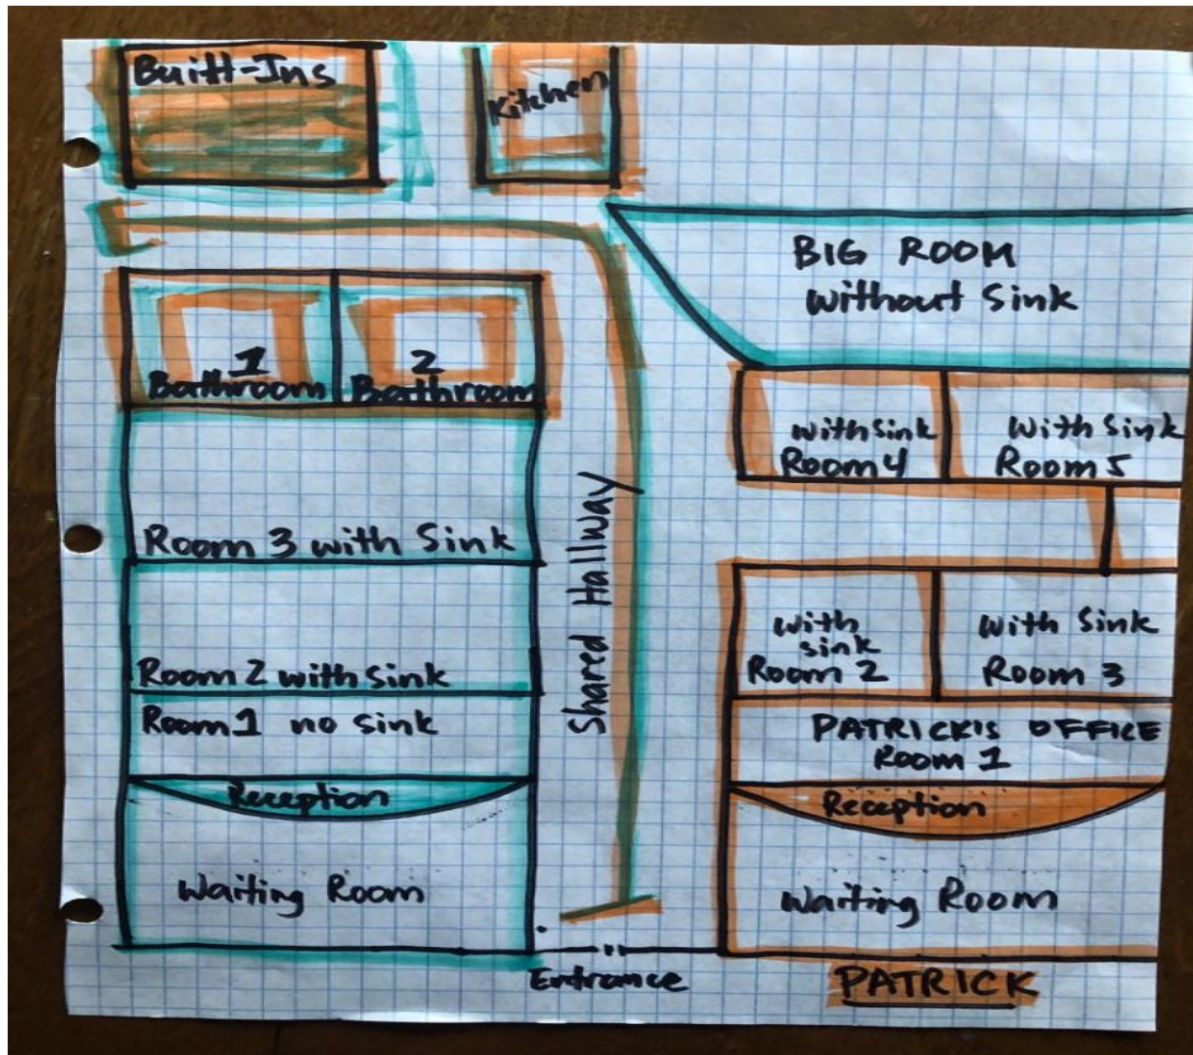 Built-Ins
Kitchen
BIG ROOM
without Sink
1
Bathroom
2
Bathroom
with sink
Room 4
With Sink
Room 5
Room 3 with Sink
Shared Hallway
with
sink
Room 2
with Sink
Room 3
Room 2 with sink
Room 1 no sink
PATRICK'S OFFICE
Room 1
Reception
Reception
Waiting Room
Waiting Room
Entrance
PATRICK